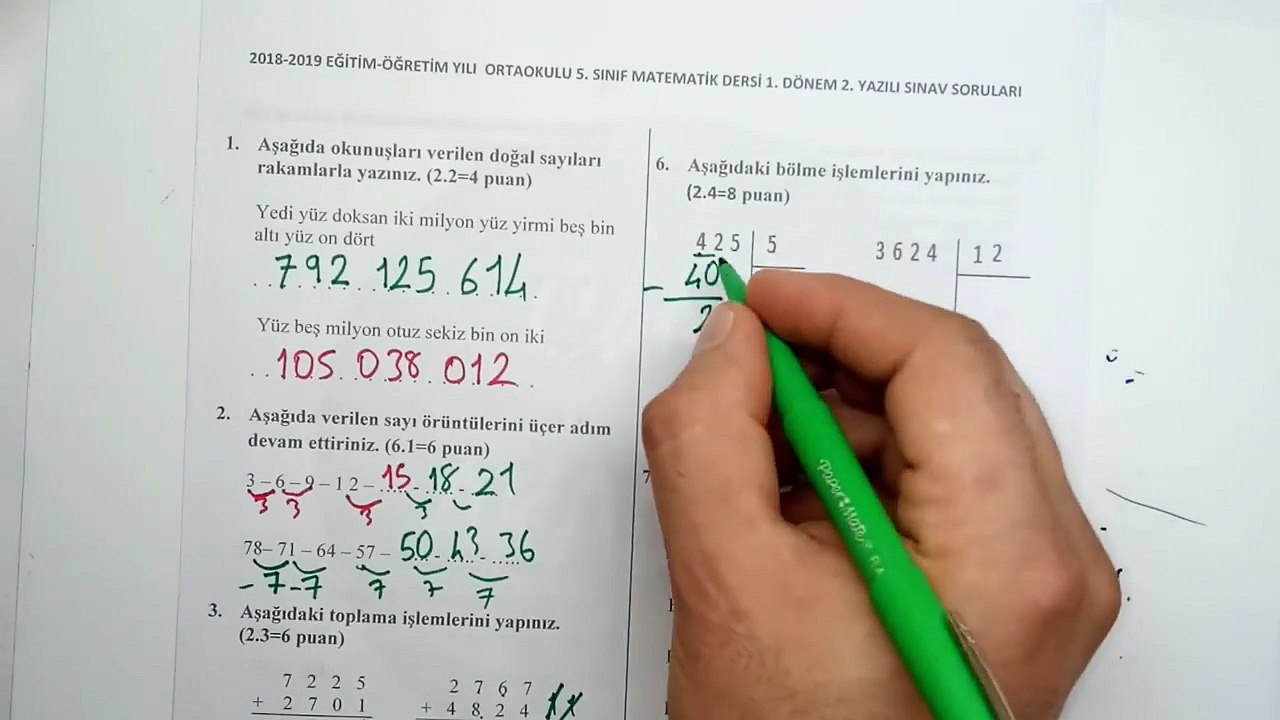 2018-2019 EĞİTİM-ÖĞRETİM YILI ORTAOKULU 5. SINIF MATEMATİK DERSİ 1. DÖNEM 2. YAZILI SINAV SORULARI
1. Aşağıda okunuşları verilen doğal sayıları
rakamlarla yazınız. (2.2=4 puan)
Yedi yüz doksan iki milyon yüz yirmi beş bin
altı yüz on dört
792 125 614
Yüz beş milyon otuz sekiz bin on iki
105 038 012
2. Aşağıda verilen sayı örüntülerini üçer adım
devam ettiriniz. (6.1=6 puan)
3 – 6 – 9 – 1 2 – 15 - 18 - 21
3 3 3 3
78 – 71 – 64 – 57 – 50 - 43 - 36
-7 -7 7 7 7
3. Aşağıdaki toplama işlemlerini yapınız.
(2.3=6 puan)
7 2 2 5
+ 2 7 0 1
2 7 6 7
+ 4 8 2 4
6. Aşağıdaki bölme işlemlerini yapınız.
(2.4=8 puan)
4 2 5 | 5
- 40
2
3 6 2 4 | 1 2
7
Paper Mate